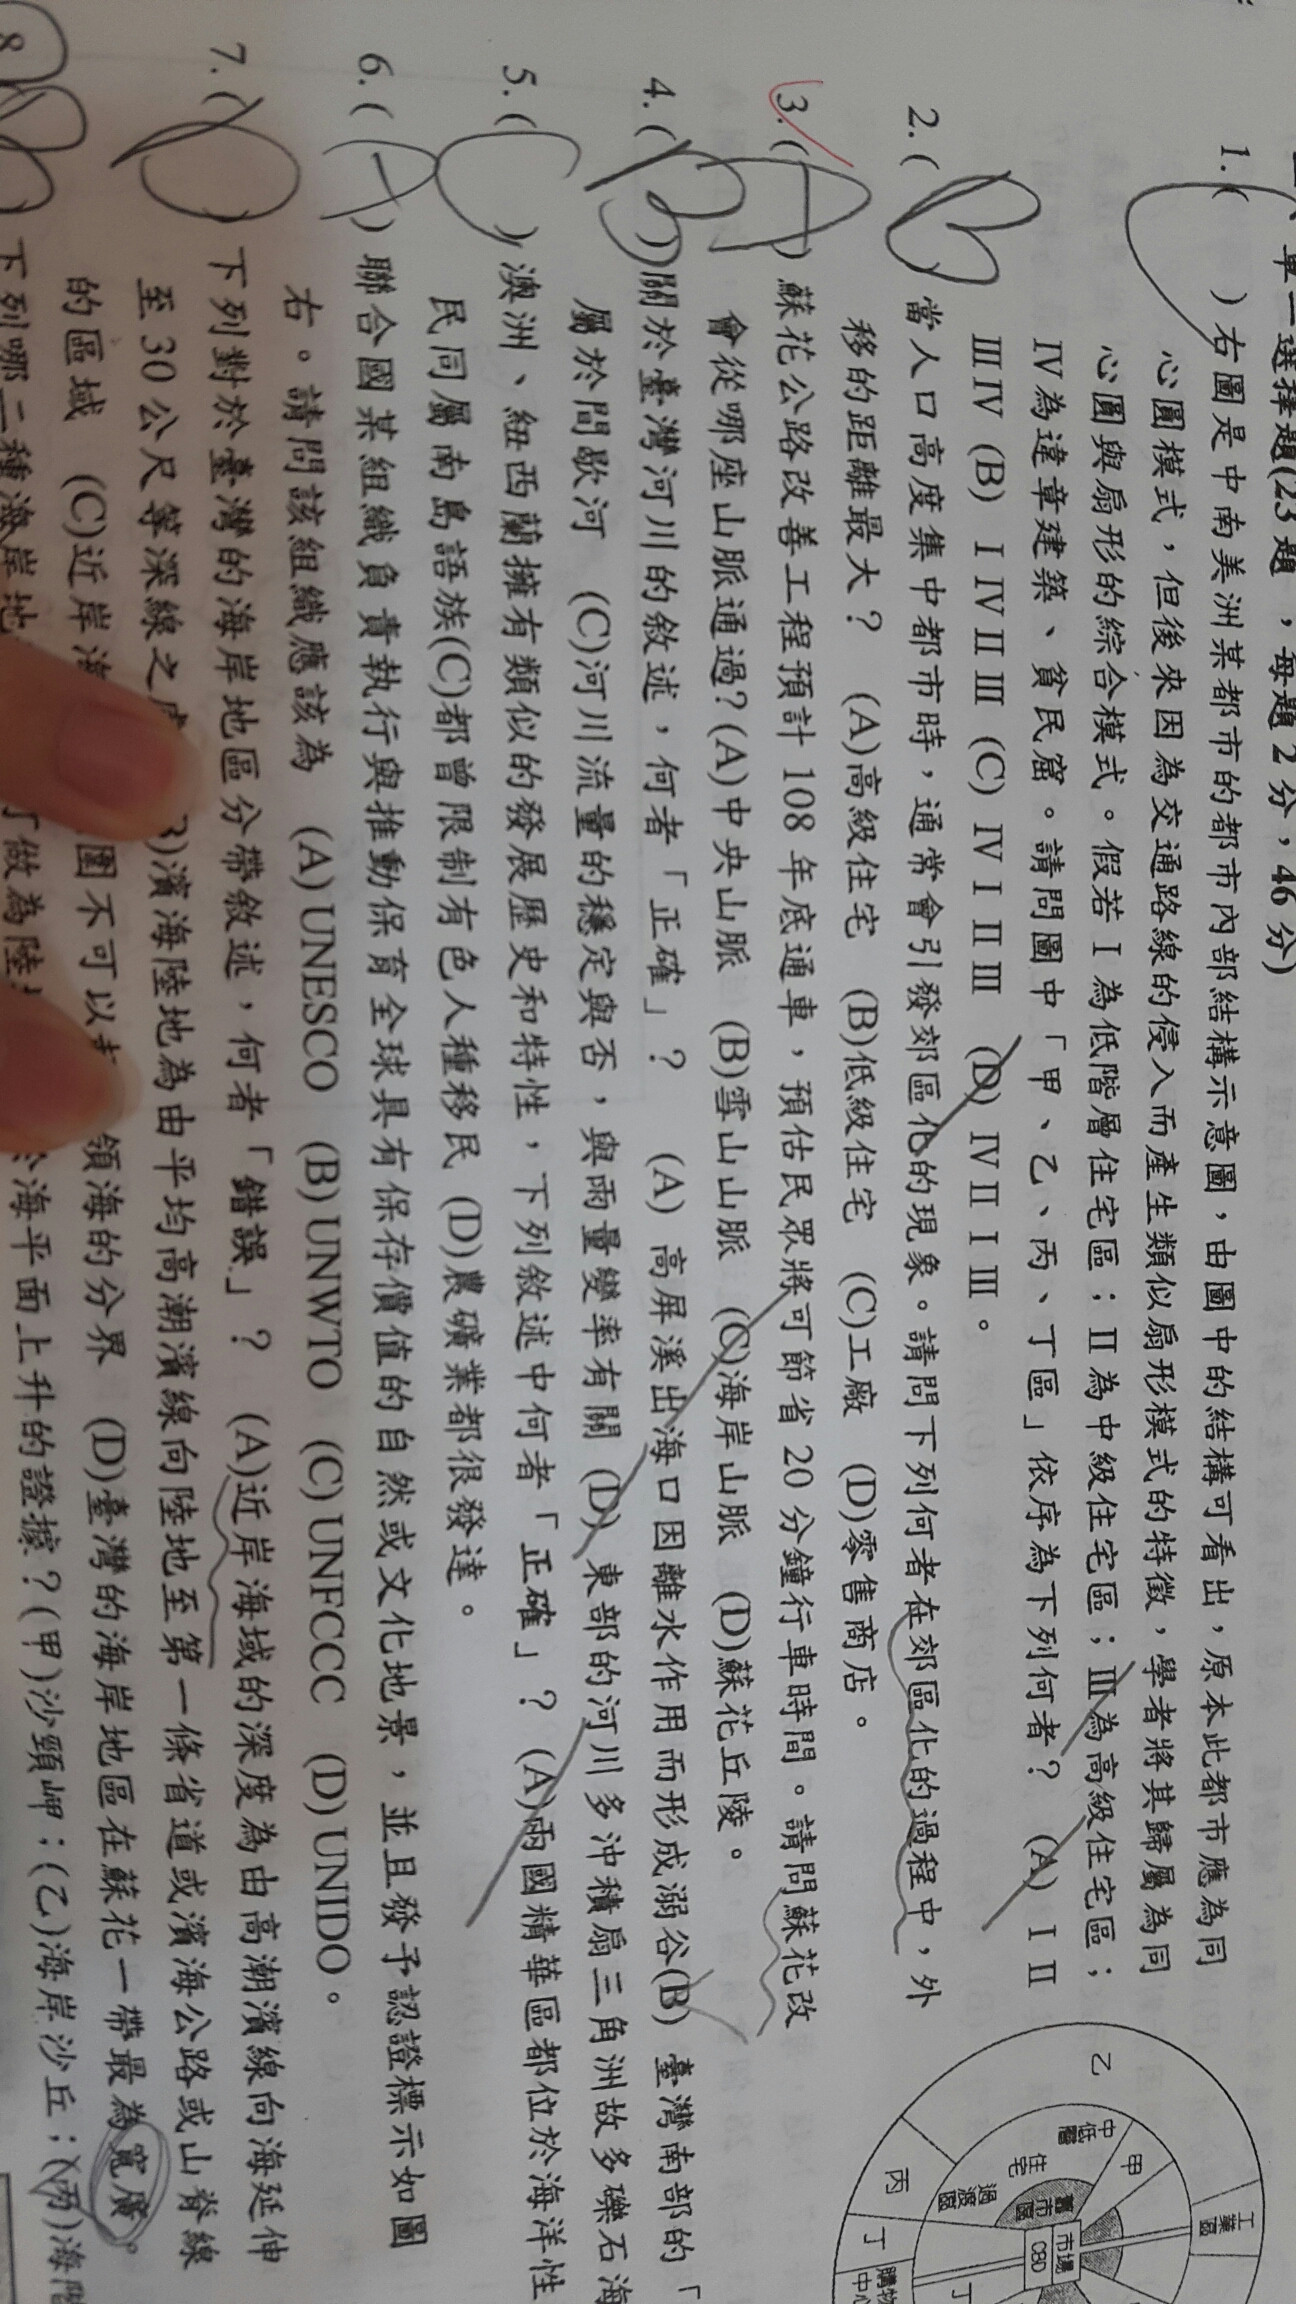 單一選擇題(23題，每題2分，46分)
1.( )右圖是中南美洲某都市的都市內部結構示意圖，由圖中的結構可看出，原本此都市應為同
心圓模式，但後來因為交通路線的侵入而產生類似扇形模式的特徵，學者將其歸屬為同
心圓與扇形的綜合模式。假若Ⅰ為低階層住宅區；Ⅱ為中級住宅區；Ⅲ為高級住宅區；
Ⅳ為違章建築、貧民窟。請問圖中「甲、乙、丙、丁區」依序為下列何者？ (A)ⅠⅡ
ⅢⅣ (B)ⅠⅣⅡⅢ (C)ⅣⅠⅡⅢ (D)ⅣⅡⅠⅢ。
2.(B 當人口高度集中都市時，通常會引發郊區化的現象。請問下列何者在郊區化的過程中，外
移的距離最大？ (A)高級住宅 (B)低級住宅 (C)工廠 (D)零售商店。
3.(A)蘇花公路改善工程預計108年底通車，預估民眾將可節省20分鐘行車時間。請問蘇花改
會從哪座山脈通過?(A)中央山脈 (B)雪山山脈 (C)海岸山脈 (D)蘇花丘陵。
4.(B)關於臺灣河川的敘述，何者「正確」？ (A)高屏溪出海口因離水作用而形成溺谷(B)臺灣南部的「
屬於間歇河 (C)河川流量的穩定與否，與雨量變率有關 (D)東部的河川多沖積扇三角洲故多礫石海
5.(C)澳洲、紐西蘭擁有類似的發展歷史和特性，下列敘述中何者「正確」？(A)兩國精華區都位於海洋性
民同屬南島語族(C)都曾限制有色人種移民 (D)農礦業都很發達。
6.(A)聯合國某組織負責執行與推動保育全球具有保存價值的自然或文化地景，並且發予認證標示如圖
右。請問該組織應該為 (A)UNESCO (B)UNWTO (C)UNFCCC (D)UNIDO。
7.(D)下列對於臺灣的海岸地區分帶敘述，何者「錯誤」？ (A)近岸海域的深度為由高潮濱線向海延伸
至30公尺等深線之 )濱海陸地為由平均高潮濱線向陸地至第一條省道或濱海公路或山脊線
的區域 (C)近岸海 圍不可以 領海的分界 (D)臺灣的海岸地區在蘇花一帶最為寬廣。
8 下列哪二種海岸地 做為陸 海平面上升的證據？(甲)沙頸岬；(乙)海岸沙丘；(丙)海階
乙
中低層
住宅
甲
過渡區
舊市區
市場
CBD
工業區
丙
丁
購物中心
丁